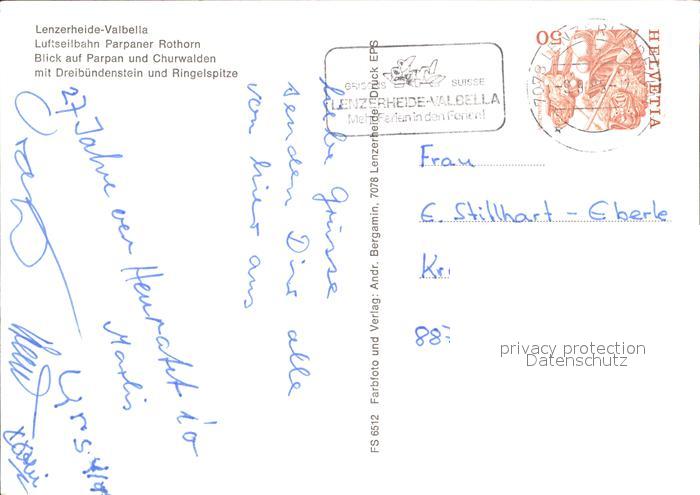 Lenzerheide-Valbella
Luftseilbahn Parpaner Rothorn
Blick auf Parpan und Churwalden
mit Dreibündenstein und Ringelspitze
GRISONS SUISSE
LENZERHEIDE-VALBELLA
Mehr Ferien in den Ferien!
7078
HELVETIA
50
Liebe Grüsse
senden Dir alle
von hier aus
27 Jahre
Marlis
Urs
FS 6512 Farbfoto und Verlag: Andr. Bergamin, 7078 Lenzerheide Druck EPS
Frau
E. Stillhart - Eberle
Kri
88
privacy protection
Datenschutz